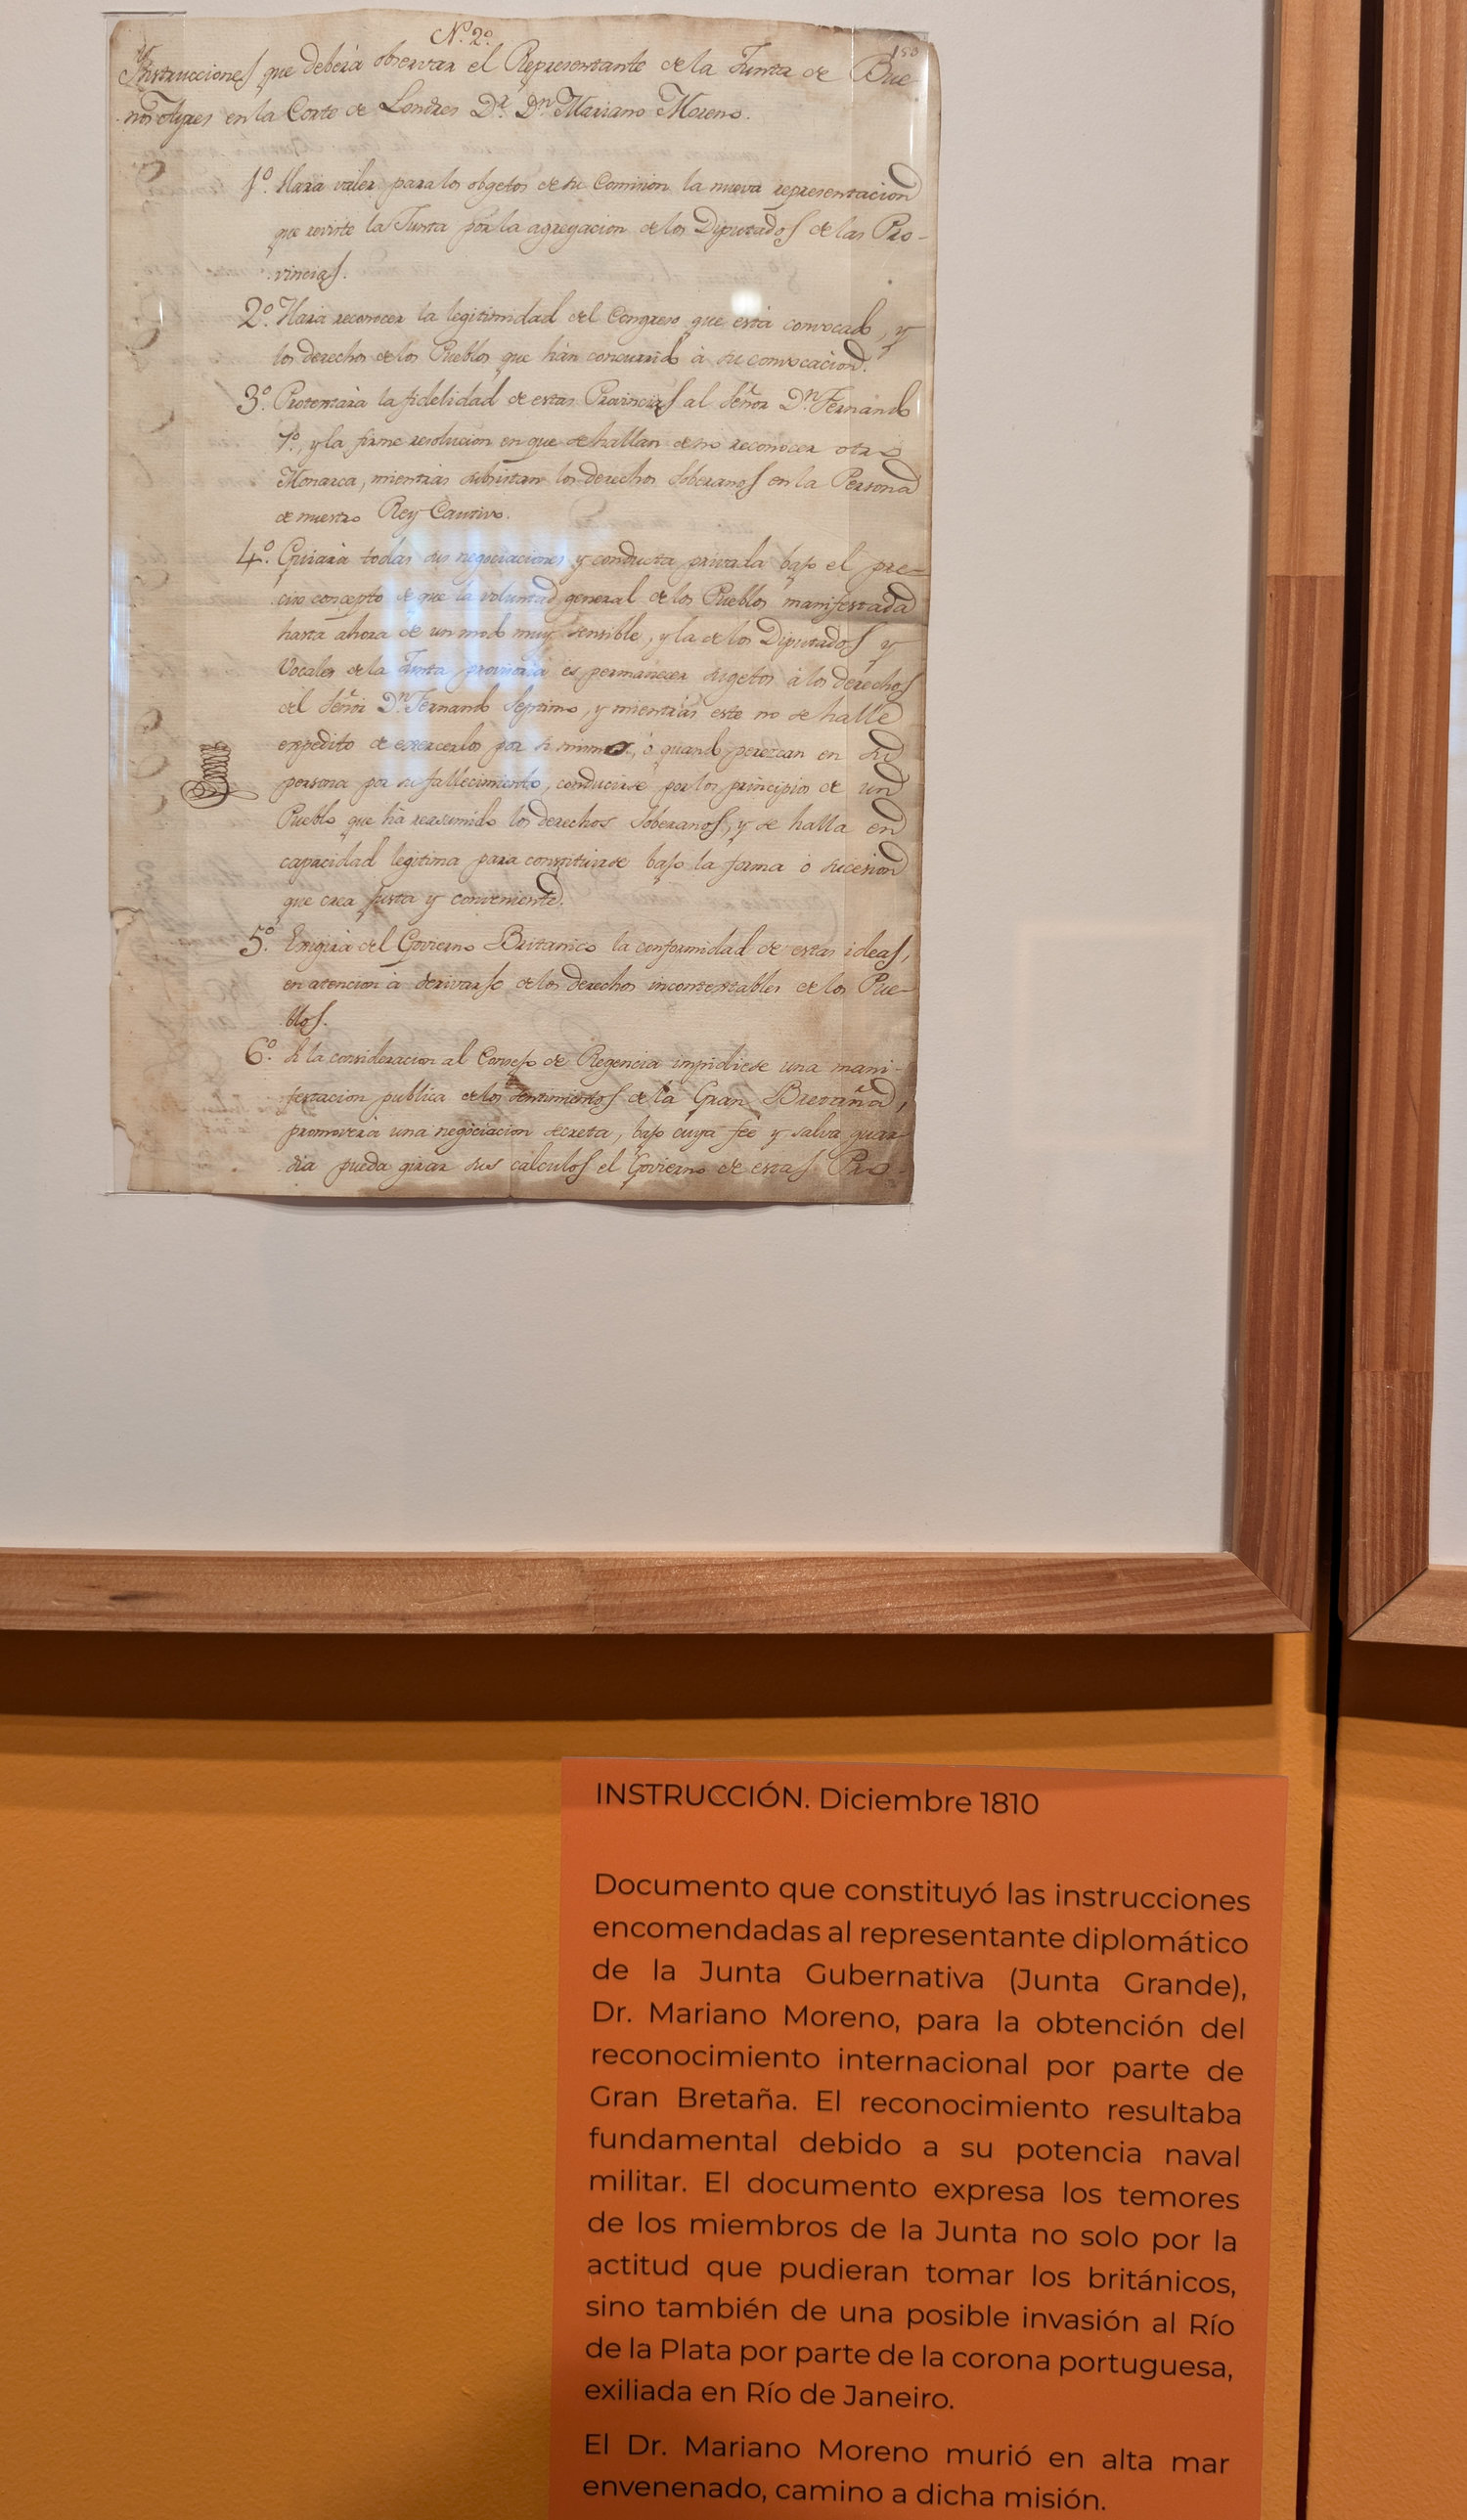 N.º 2º.
150
Instrucciones que deberá observar el Representante de la Junta de Bue
nos Ayres en la Corte de Londres Dr. Dn. Mariano Moreno.
1º. Hará valer para los obgetos de su Comision la nueva representacion
que reviste la Junta por la agregacion de los Diputados de las Pro-
vincias.
2º. Hará reconocer la legitimidad del Congreso que está convocado, y
los derechos de los Pueblos que hán concurrido á su convocacion.
3º. Protestará la fidelidad de estas Provincias al Señor Dn. Fernando
7º., y la firme resolucion en que se hallan de no reconocer otro
Monarca, mientras subsistan los derechos Soberanos en la Persona
de nuestro Rey Cautivo.
4º. Guiará todas sus negociaciones y conducta privada bajo el pre-
ciso concepto de que la voluntad general de los Pueblos manifestada
hasta ahora de un modo muy sensible, y la de los Diputados y
Vocales de la Junta provisoria es permanecer sugetos á los derechos
del Señor Dn. Fernando Septimo, y mientras este no se halle
expedito de exercerlos por si mismo, ó quando perezcan en su
persona por su fallecimiento, conducirse por los principios de un
Pueblo que há reasumido los derechos Soberanos, y se halla en
capacidad legitima para constituirse bajo la forma ó sucesion
que crea justa y conveniente.
5º. Exigirá del Govierno Britanico la conformidad de estas ideas,
en atencion á derivarse de los derechos incontestables de los Pue-
blos.
6º. Si la consideracion al Consejo de Regencia impidiese una mani-
festacion publica de los sentimientos de la Gran Bretaña,
promoverá una negociacion secreta, bajo cuya fee y salva guar
dia pueda girar sus cálculos el Govierno de estas Pro-
INSTRUCCIÓN. Diciembre 1810
Documento que constituyó las instrucciones
encomendadas al representante diplomático
de la Junta Gubernativa (Junta Grande),
Dr. Mariano Moreno, para la obtención del
reconocimiento internacional por parte de
Gran Bretaña. El reconocimiento resultaba
fundamental debido a su potencia naval
militar. El documento expresa los temores
de los miembros de la Junta no solo por la
actitud que pudieran tomar los británicos,
sino también de una posible invasión al Río
de la Plata por parte de la corona portuguesa,
exiliada en Río de Janeiro.
El Dr. Mariano Moreno murió en alta mar
envenenado, camino a dicha misión.